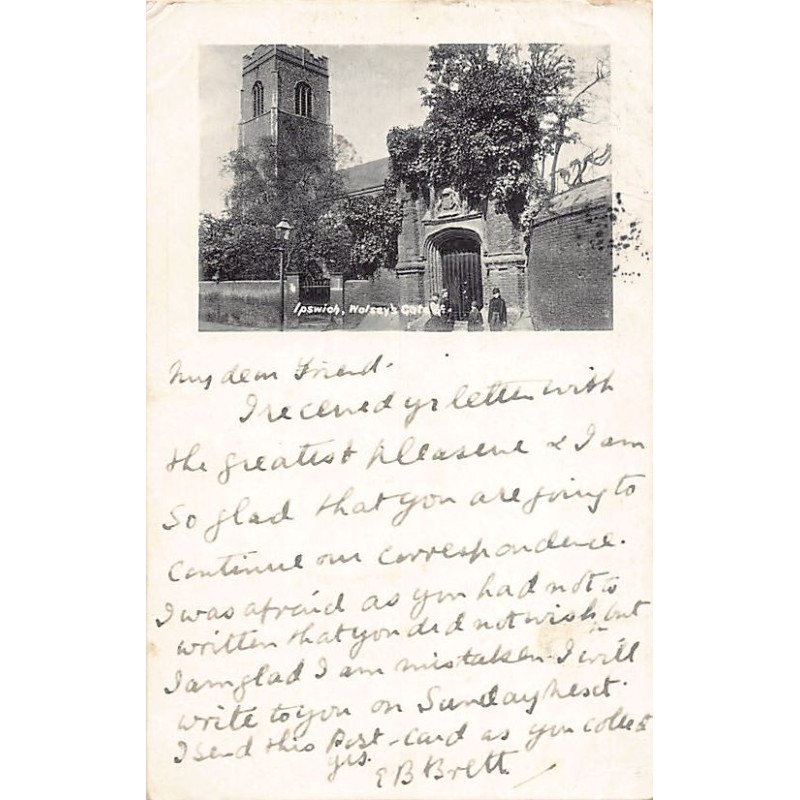 Ipswich, Wolsey's Gate.
My dear Friend.
I received yr letter with
the greatest pleasure & I am
so glad that you are going to
continue our correspondence.
I was afraid as you had not to
written that you did not wish but
I am glad I am mistaken. I will
write to you on Sunday next.
I send this Post-card as you collect
yrs.
E B Brett